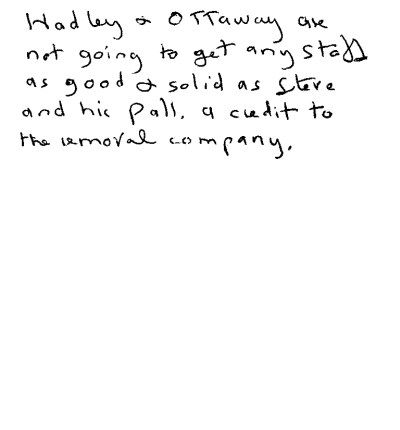 Hadley & OTTaway are
not going to get any staff
as good & solid as Steve
and his Pall. a credit to
the removal company.